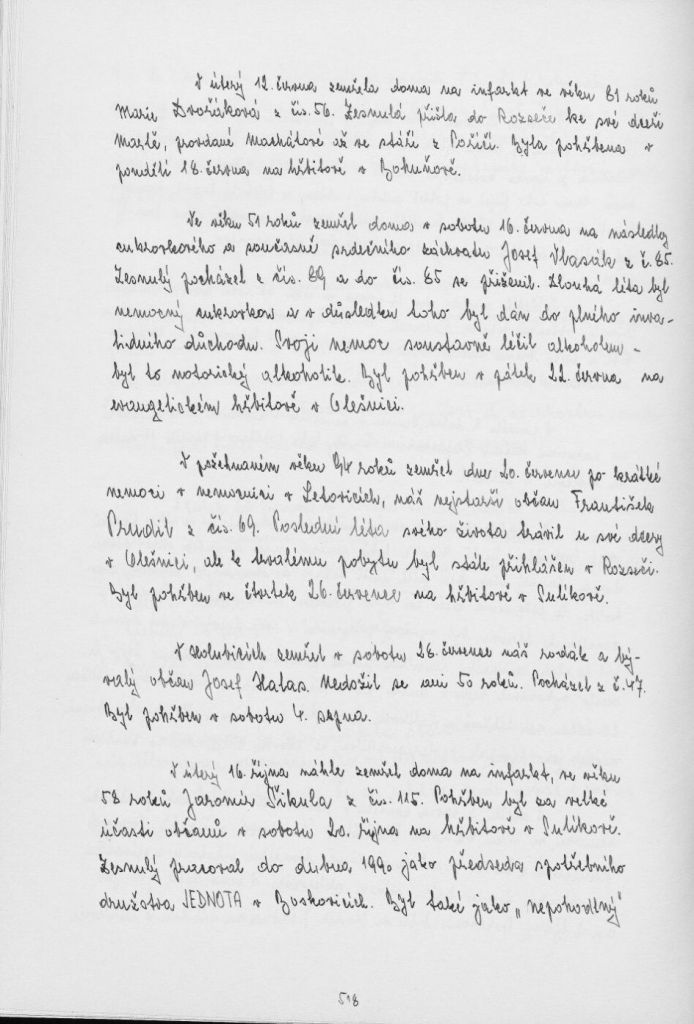 V úterý 12. června zemřela doma na infarkt ve věku 81 roků
Marie Dvořáková z čís. 56. Zesnulá přišla do Rozseče ke své dceři
Martě, provdané Machátové až ve stáří z Poříčí. Byla pohřbena v
pondělí 18. června na hřbitově v Bohuňově.
Ve věku 51 roků zemřel doma v sobotu 16. června na následky
cukrovkového a současně srdečního záchvatu Josef Vlasák z č. 85.
Zesnulý pocházel z čís. 89 a do čís. 85 se přiženil. Dlouhá léta byl
nemocný cukrovkou a v důsledku toho byl dán do plního inva-
lidního důchodu. Svoji nemoc soustavně léčil alkoholem -
byl to notorický alkoholik. Byl pohřben v pátek 22. června na
evangelickém hřbitově v Olešnici.
V požehnaném věku 94 roků zemřel dne 20. července po krátké
nemoci v nemocnici v Letovicích, náš nejstarší občan František
Prudil z čís. 69. Poslední léta svého života trávil u své dcery
v Olešnici, ale k trvalému pobytu byl stále přihlášen v Rozseči.
Byl pohřben ve čtvrtek 26. července na hřbitově v Sulíkově.
V Holubicích zemřel v sobotu 28. července náš rodák a bý-
valý občan Josef Halas. Nedožil se ani 50 roků. Pocházel z č. 47.
Byl pohřben v sobotu 4. srpna.
V úterý 16. října náhle zemřel doma na infarkt, ve věku
58 roků Jaromír Šikula z čís. 115. Pohřben byl za velké
účasti občanů v sobotu 20. října na hřbitově v Sulíkově.
Zesnulý pracoval do dubna 1990 jako předseda spotřebního
družstva JEDNOTA v Boskovicích. Byl také jako „nepohodlný"
518